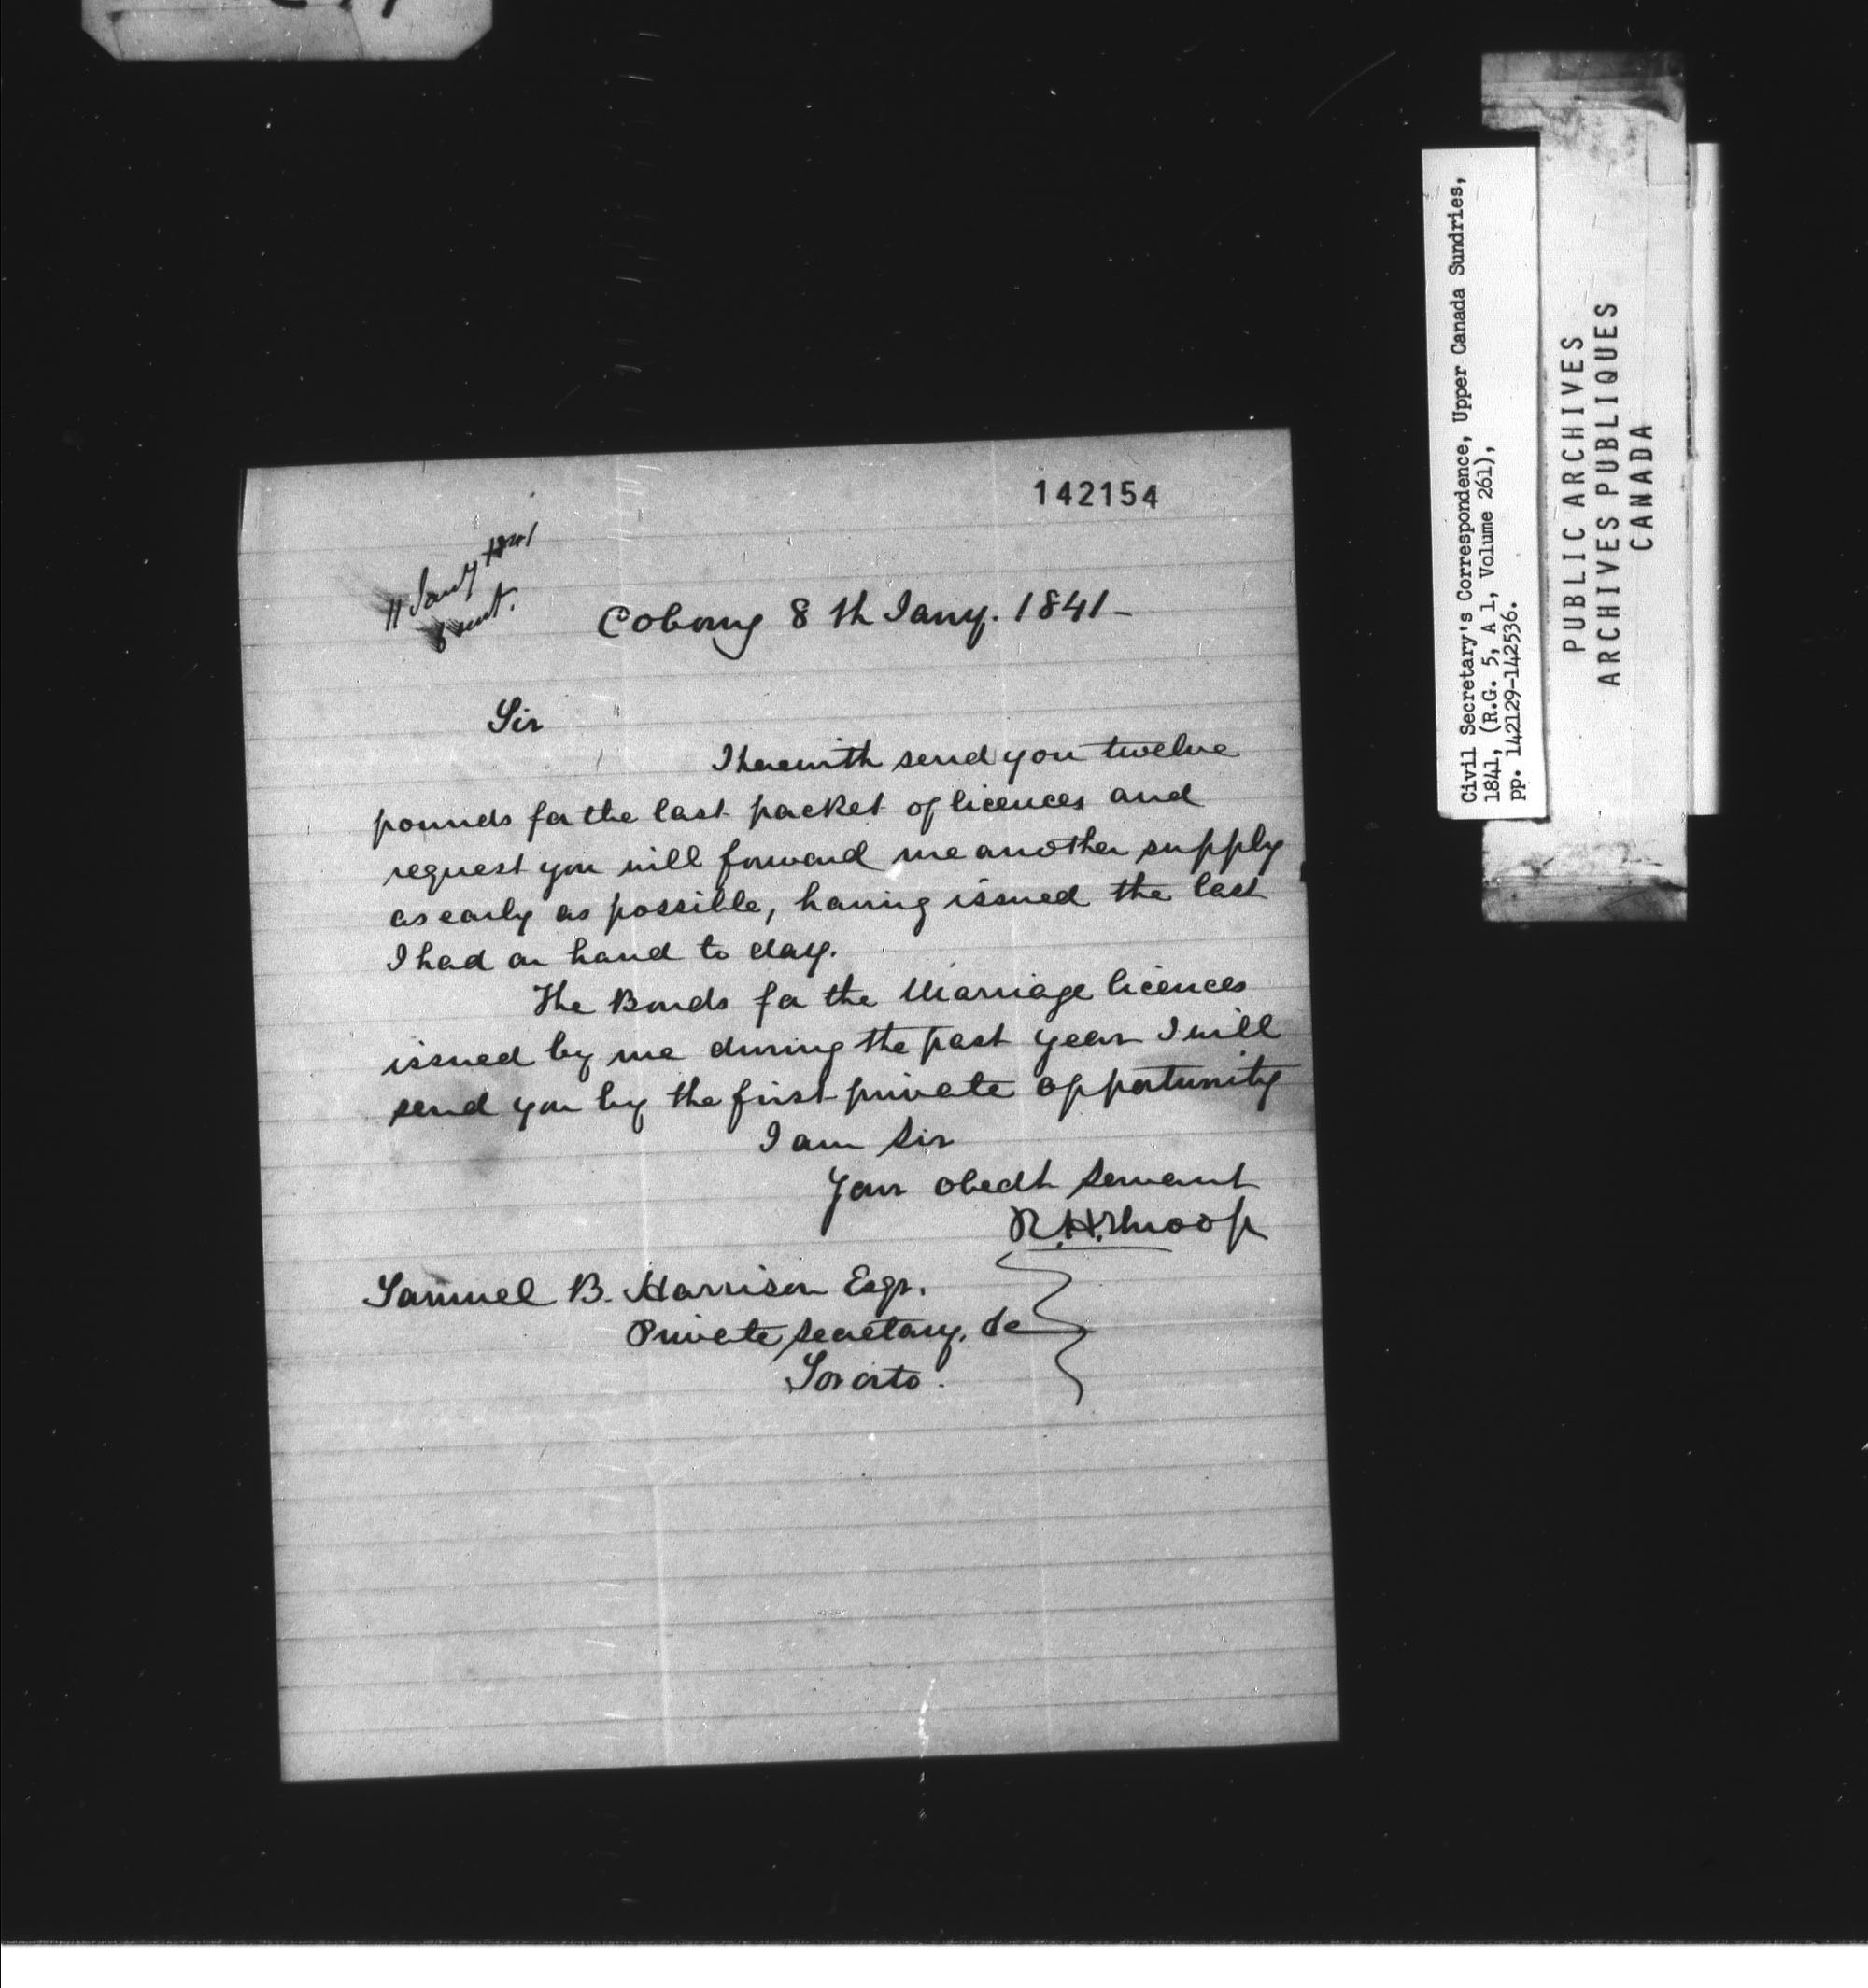 142154
11 Jany 1841
sent.
Cobourg 8th Jany. 1841-
Sir
I herewith send you twelve
pounds for the last packet of licences and
request you will forward me another supply
as early as possible, having issued the last
I had on hand to day.
The Bonds for the Marriage licences
issued by me during the past year I will
send you by the first private opportunity
I am Sir
Your obedt Servant
R.H. Throop
Samuel B. Harrison Esqr.
Private Secretary, &c
Toronto.
Civil Secretary's Correspondence, Upper Canada Sundries,
1841, (R.G. 5, A 1, Volume 261),
pp. 142129-142536.
PUBLIC ARCHIVES
ARCHIVES PUBLIQUES
CANADA